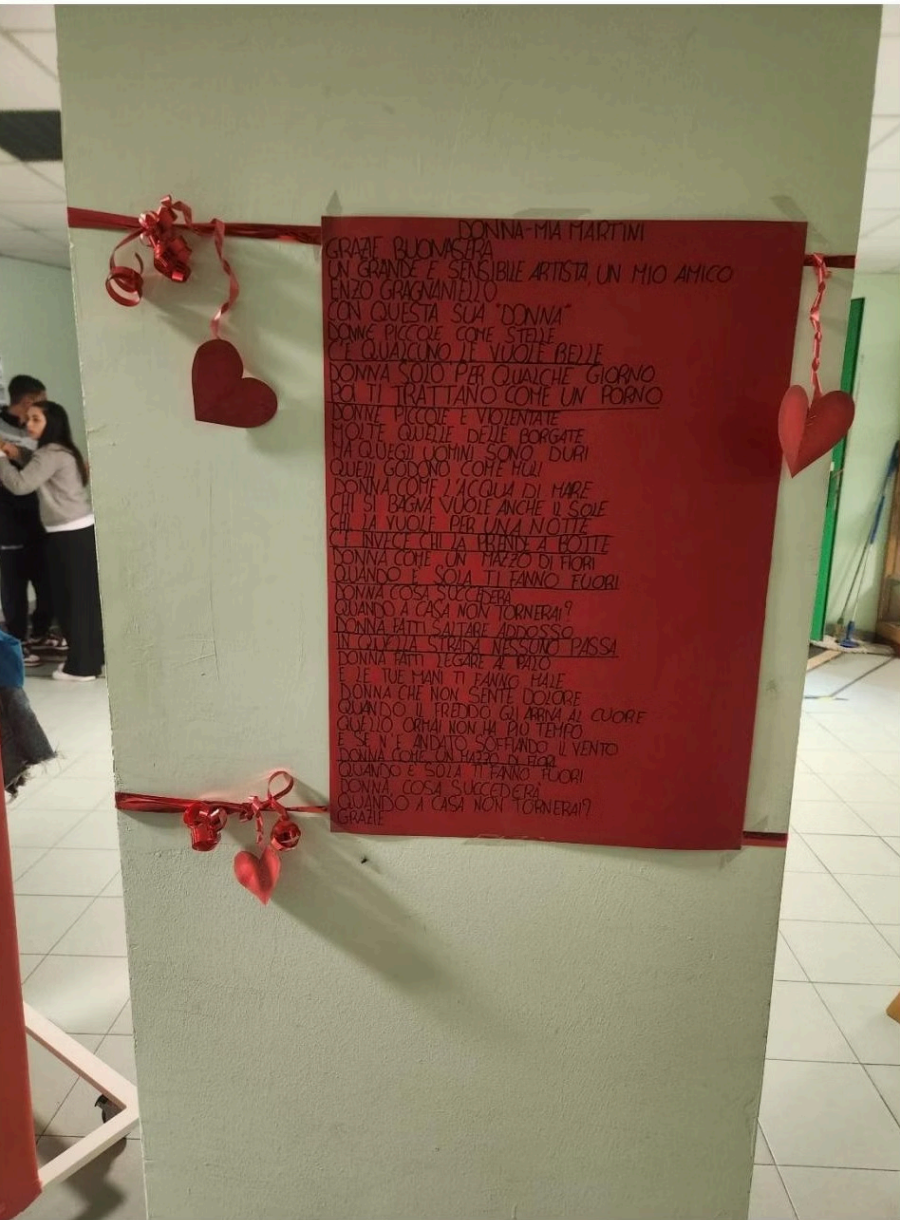 DONNA-MIA MARTINI
GRAZIE BUONASERA
UN GRANDE E SENSIBILE ARTISTA, UN MIO AMICO
ENZO GRAGNANIELLO
CON QUESTA SUA "DONNA"
DONNE PICCOLE COME STELLE
C'E QUALCUNO LE VUOLE BELLE
DONNA SOLO PER QUALCHE GIORNO
POI TI TRATTANO COME UN PORNO
DONNE PICCOLE E VIOLENTATE
MOLTE QUELLE DELLE BORGATE
MA QUEGLI UOMINI SONO DURI
QUELLI GODONO COME MULI
DONNA COME L'ACQUA DI MARE
CHI SI BAGNA VUOLE ANCHE IL SOLE
CHI LA VUOLE PER UNA NOTTE
C'E INVECE CHI LA PRENDE A BOTTE
DONNA COME UN MAZZO DI FIORI
QUANDO E SOLA TI FANNO FUORI
DONNA COSA SUCCEDERA
QUANDO A CASA NON TORNERAI?
DONNA FATTI SALTARE ADDOSSO
IN QUELLA STRADA NESSUNO PASSA
DONNA FATTI LEGARE AL PALO
E LE TUE MANI TI FANNO MALE
DONNA CHE NON SENTE DOLORE
QUANDO IL FREDDO GLI ARRIVA AL CUORE
QUELLO ORMAI NON HA PIU TEMPO
E SE N'E ANDATO SOFFIANDO IL VENTO
DONNA COME UN MAZZO DI FIORI
QUANDO E SOLA TI FANNO FUORI
DONNA, COSA SUCCEDERA
QUANDO A CASA NON TORNERAI?
GRAZIE